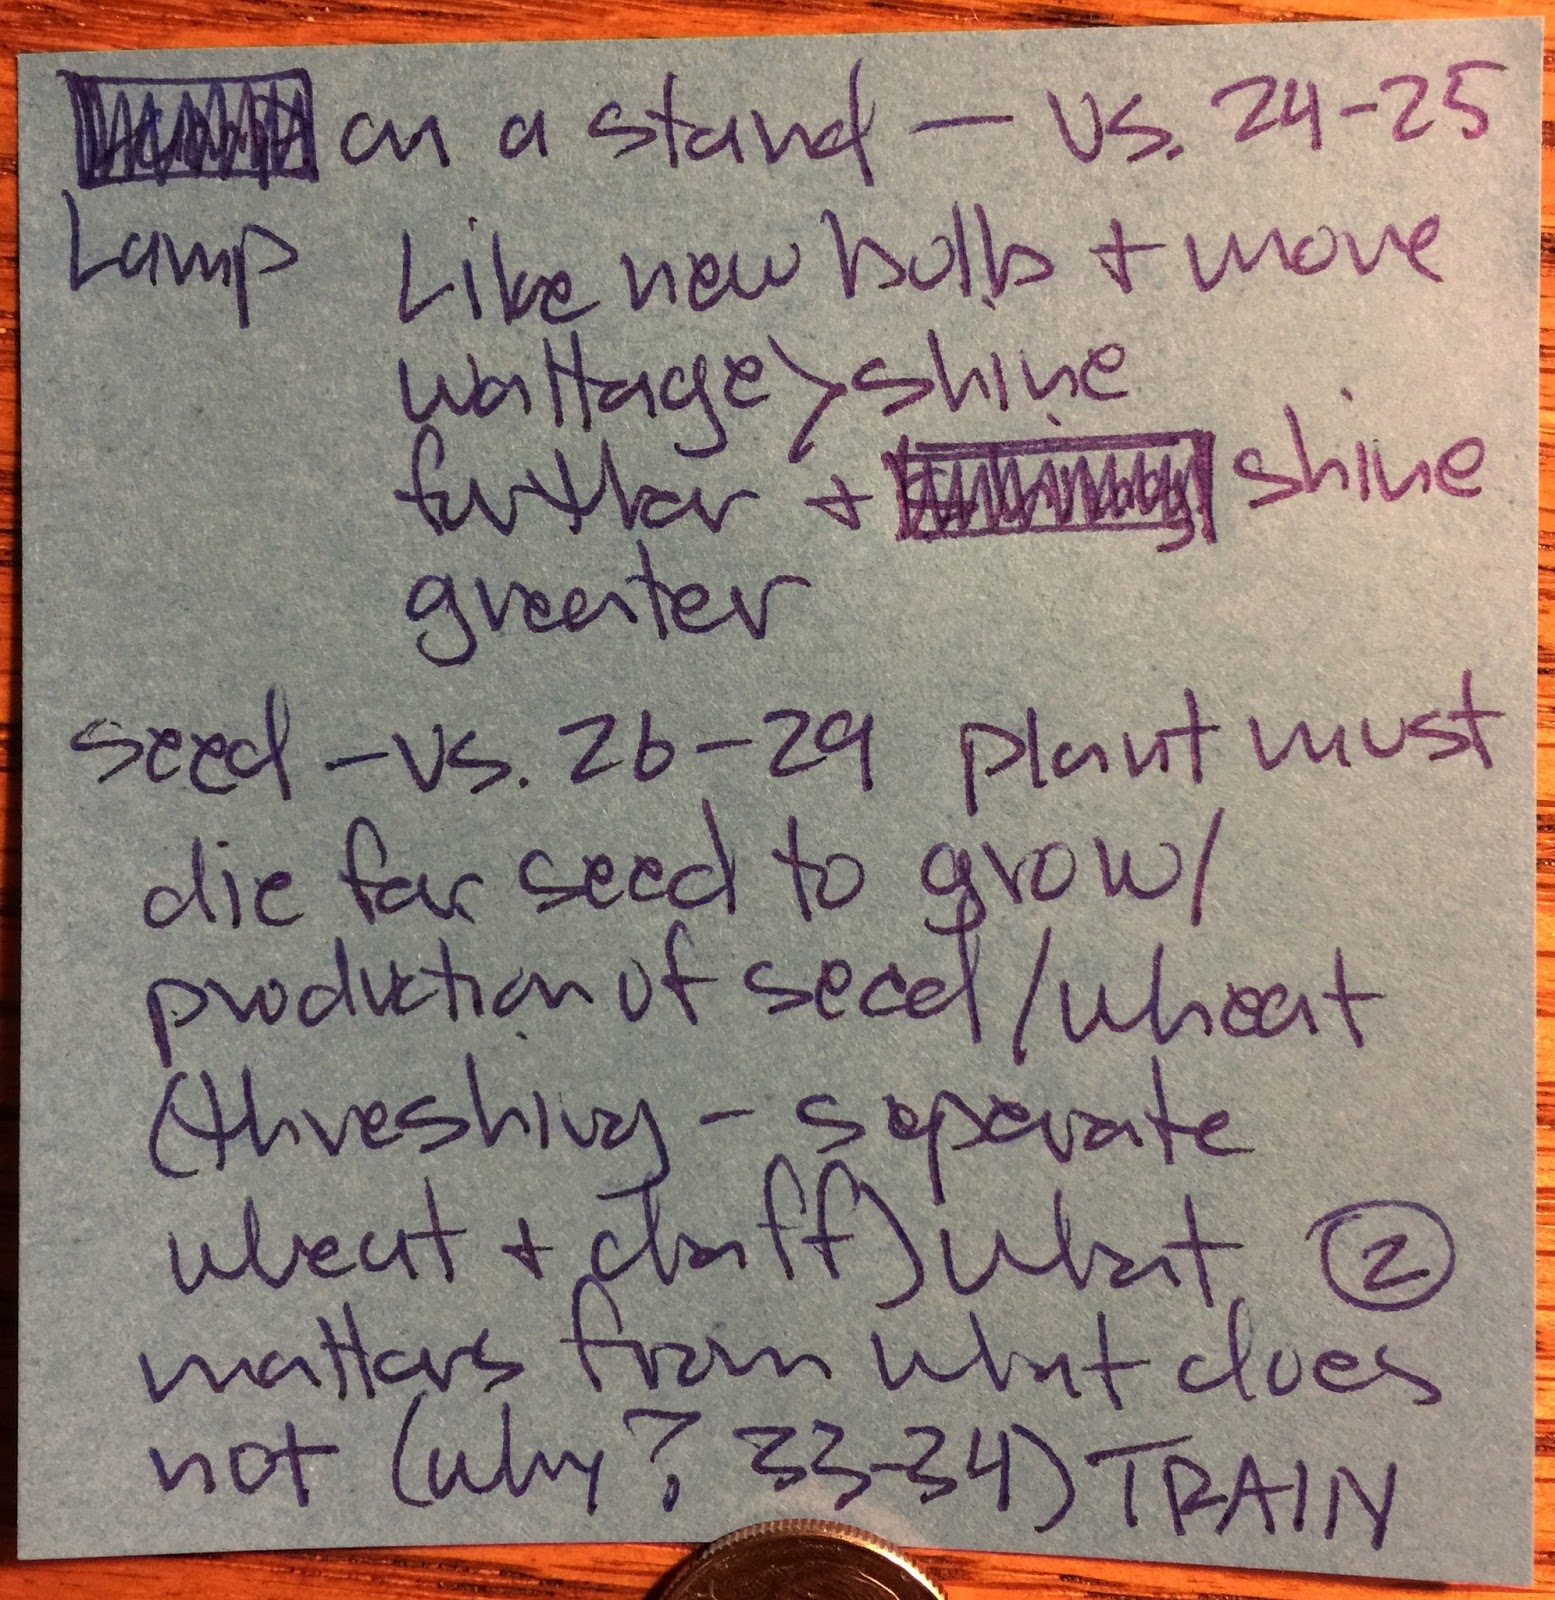 on a stand — vs. 24-25
Lamp Like new bulb + move
wattage > shine
further + shine
greater
seed - vs. 26-29 plant must
die for seed to grow/
production of seed/wheat
(threshing - seperate
wheat + chaff) what ②
matters from what does
not (why? 33-34) TRAIN